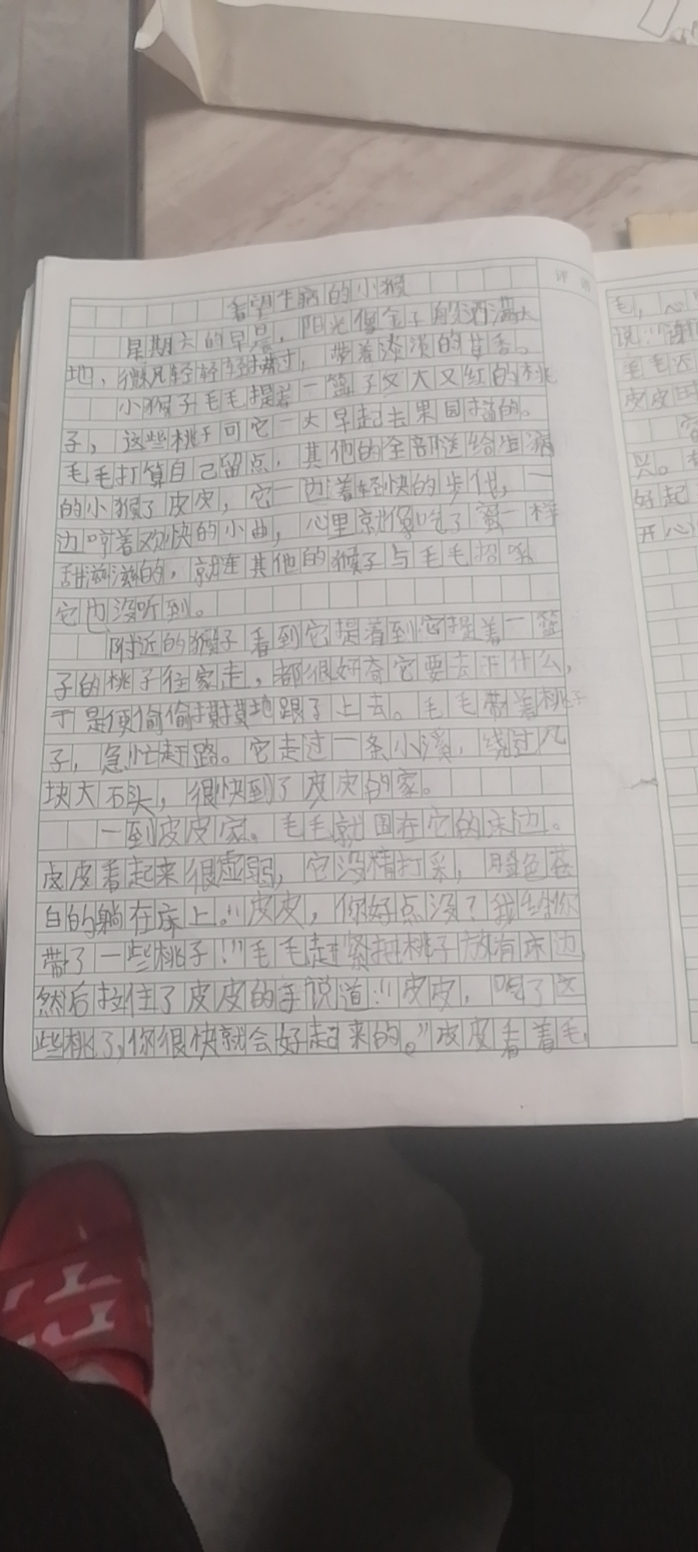 看望生病的小猴
星期六的早晨，阳光像金子般洒满大
地，微风轻轻轻拂过，带着淡淡的草香。
小猴子毛毛提着一篮子又大又红的桃
子，这些桃子可它一大早起去果园摘的。
毛毛打算自己留点，其他的全部送给生病
的小猴子皮皮，它一边着轻快的步伐，一
边哼着欢快的小曲，心里就像吃了蜜一样
甜滋滋的，就连其他的猴子与毛毛招呼
它也没听到。
附近的猴子看到它提着到它提着一篮
子的桃子往家走，都很好奇它要去干什么，
于是便偷偷摸摸地跟了上去。毛毛带着桃子
子，急忙赶路。它走过一条小溪，绕过几
块大石头，很快到了皮皮的家。
一到皮皮家。毛毛就围在它的床边。
皮皮看起来很虚弱，它没精打采，脸色苍
白的躺在床上。“皮皮，你好点没？我给你
带了一些桃子！”毛毛赶紧把桃子放有床边
然后拉住了皮皮的手说道：“皮皮，吃了这
些桃子，你很快就会好起来的。”皮皮看着毛
评语
毛，心
说：“谢
毛毛还
皮皮
兴。
好起
开心